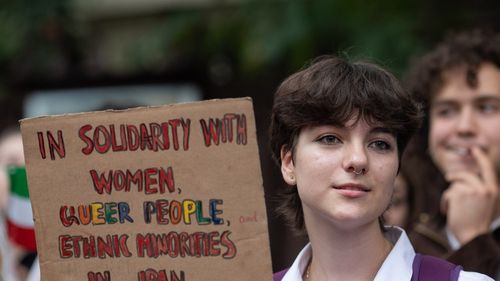 IN SOLIDARITY WITH
WOMEN,
QUEER PEOPLE, and
ETHNIC MINORITIES
IN IRAN